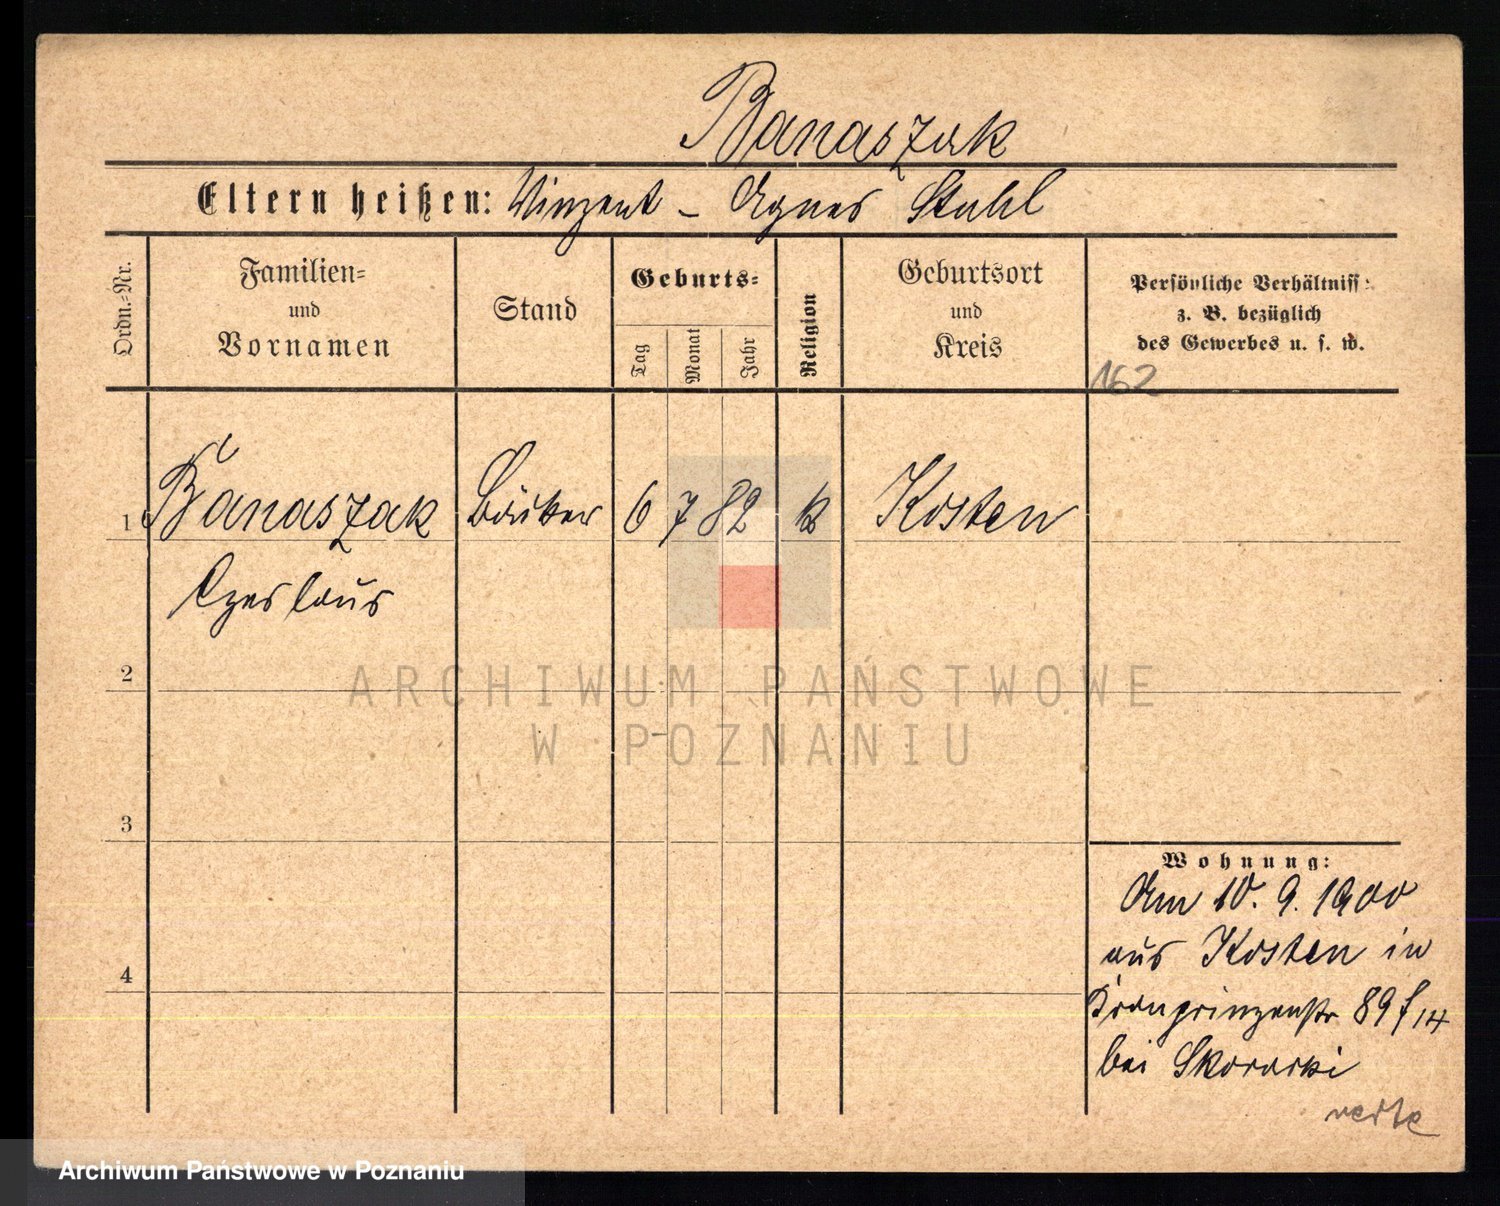 Banaszak
Eltern heißen: Vinzent – Agnes Stahl
Ordn.=Nr.
Familien=
und
Vornamen
Stand
Geburts=
Tag
Monat
Jahr
Religion
Geburtsort
und
Kreis
Persönliche Verhältniss:
z. B. bezüglich
des Gewerbes u. s. w.
162
1 Banaszak Bäcker 6 7 82 k Kosten
Czeslaus
2
3
4
Wohnung:
Am 10. 9. 1900
aus Kosten in
Kronprinzenstr 89
bei
verte
ARCHIWUM PAŃSTWOWE
W POZNANIU
Archiwum Państwowe w Poznaniu